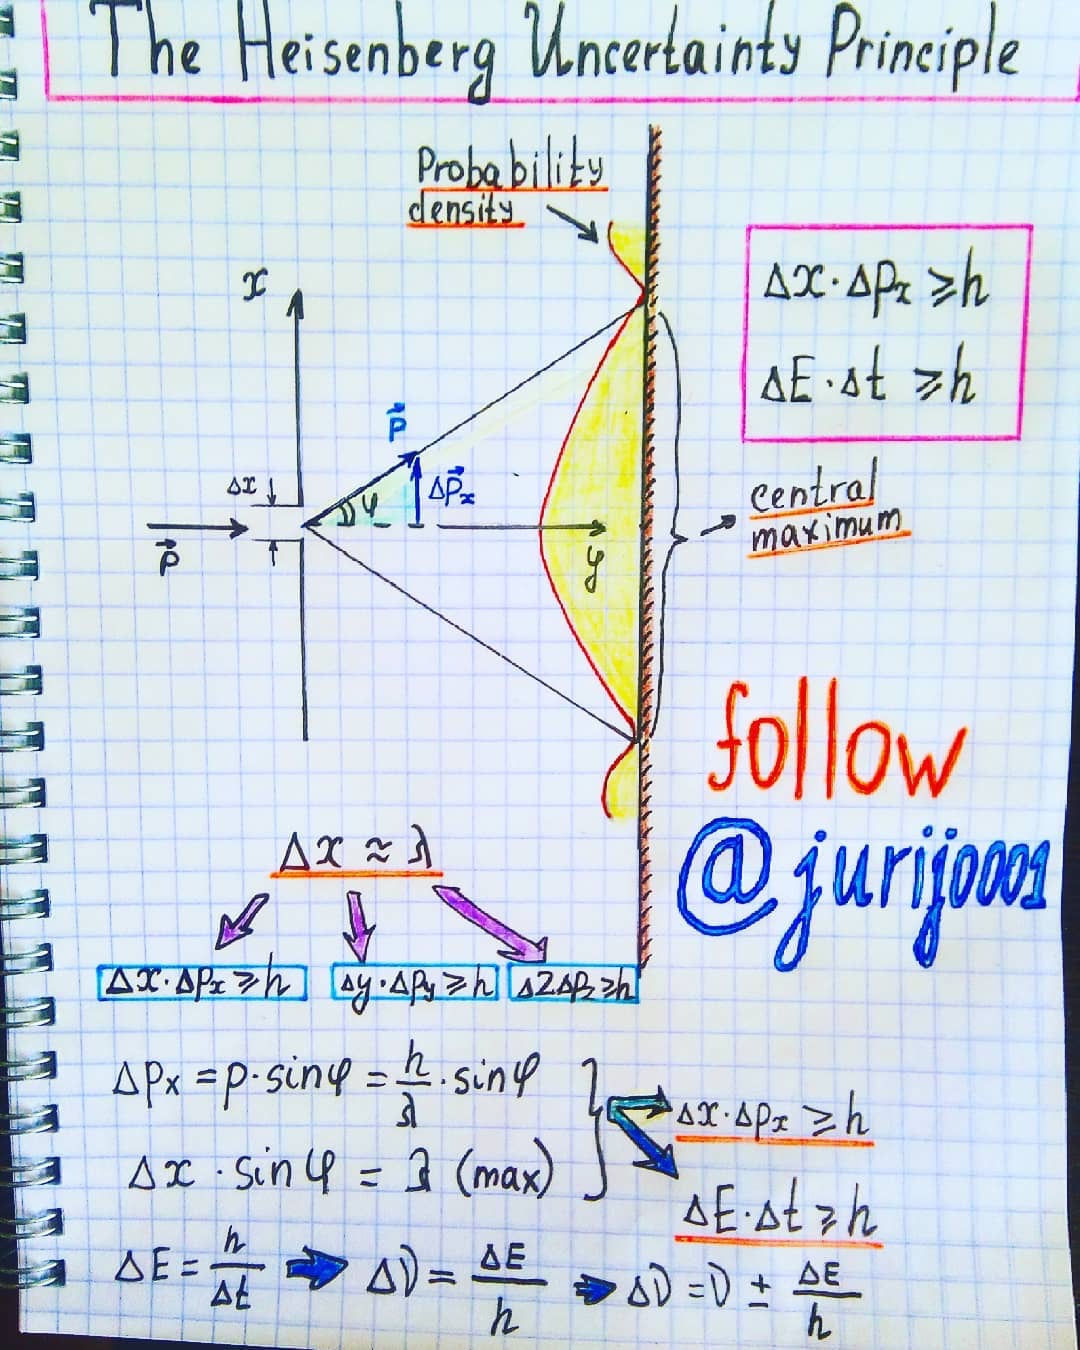 The Heisenberg Uncertainty Principle
Probability
density
x
Δx·Δpx ≥h
ΔE·Δt ≥h
p⃗
Δx
φ
Δp⃗x
p⃗
y
central
maximum
follow
@jurij0001
Δx ≈ λ
Δx·Δpx ≥h
Δy·Δpy ≥h
ΔZΔPz ≥h
Δpx = p·sinφ = h/λ · sinφ
Δx·Δpx ≥h
Δx · sinφ = λ (max)
ΔE·Δt ≥h
ΔE = h/Δt
Δν = ΔE/h
Δν = ν ± ΔE/h